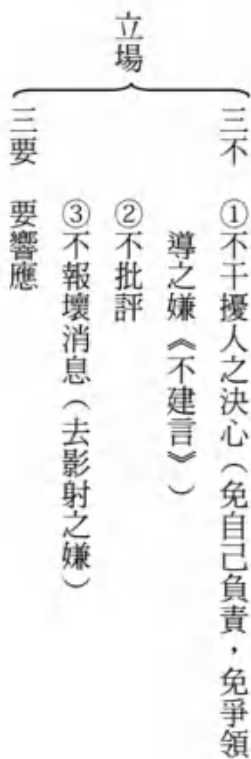 立場
三不　①不干擾人之決心（免自己負責，免爭領
導之嫌《不建言》）
②不批評
③不報壞消息（去影射之嫌）
三要　要響應